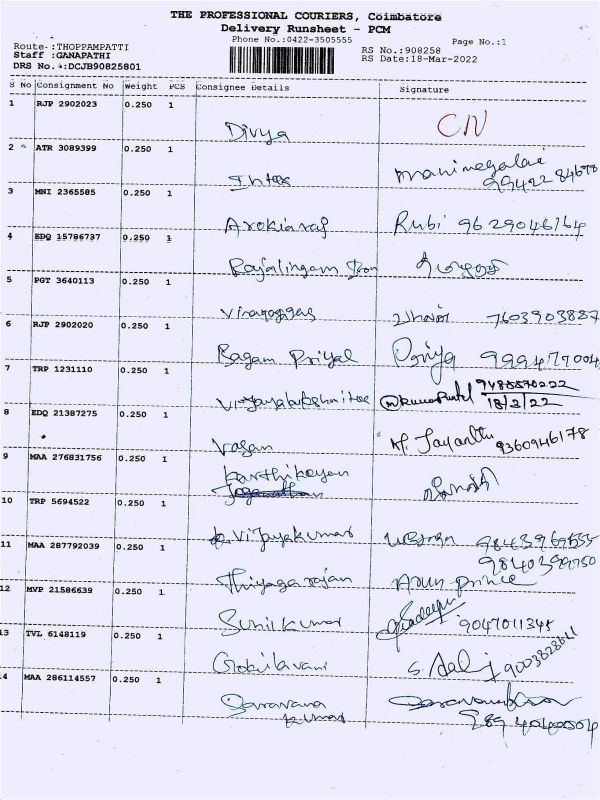 THE PROFESSIONAL COURIERS, Coimbatore
Delivery Runsheet - PCM
Phone No.:0422-3505555
Page No.:1
Route :THOPPAMPATTI
Staff :GANAPATHI
DRS No. :DCJB90825801
RS No.:908258
RS Date:18-Mar-2022
S No Consignment No Weight PCS Consignee Details Signature
1 RJP 2902023 0.250 1
Divya CN
2 ATR 3089399 0.250 1
Manimegalai
3 MNI 2365585 0.250 1
Arokiaraj Rubi 9629046164
4 EDQ 15786737 0.250 1
Rajalingam
5 PGT 3640113 0.250 1
7603903887
6 RJP 2902020 0.250 1
Priyal Priya
7 TRP 1231110 0.250 1
18/3/22
8 EDQ 21387275 0.250 1
Vasan Jayanthi 9360946178
9 MAA 276831756 0.250 1
Karthikeyan
10 TRP 5694522 0.250 1
Vijayakumar
11 MAA 287792039 0.250 1
Thiyagarajan Arun prince
12 MVP 21586639 0.250 1
Sunil kumar 9047011345
13 TVL 6148119 0.250 1
Gokilavani S.
14 MAA 286114557 0.250 1
Saravana
kumar